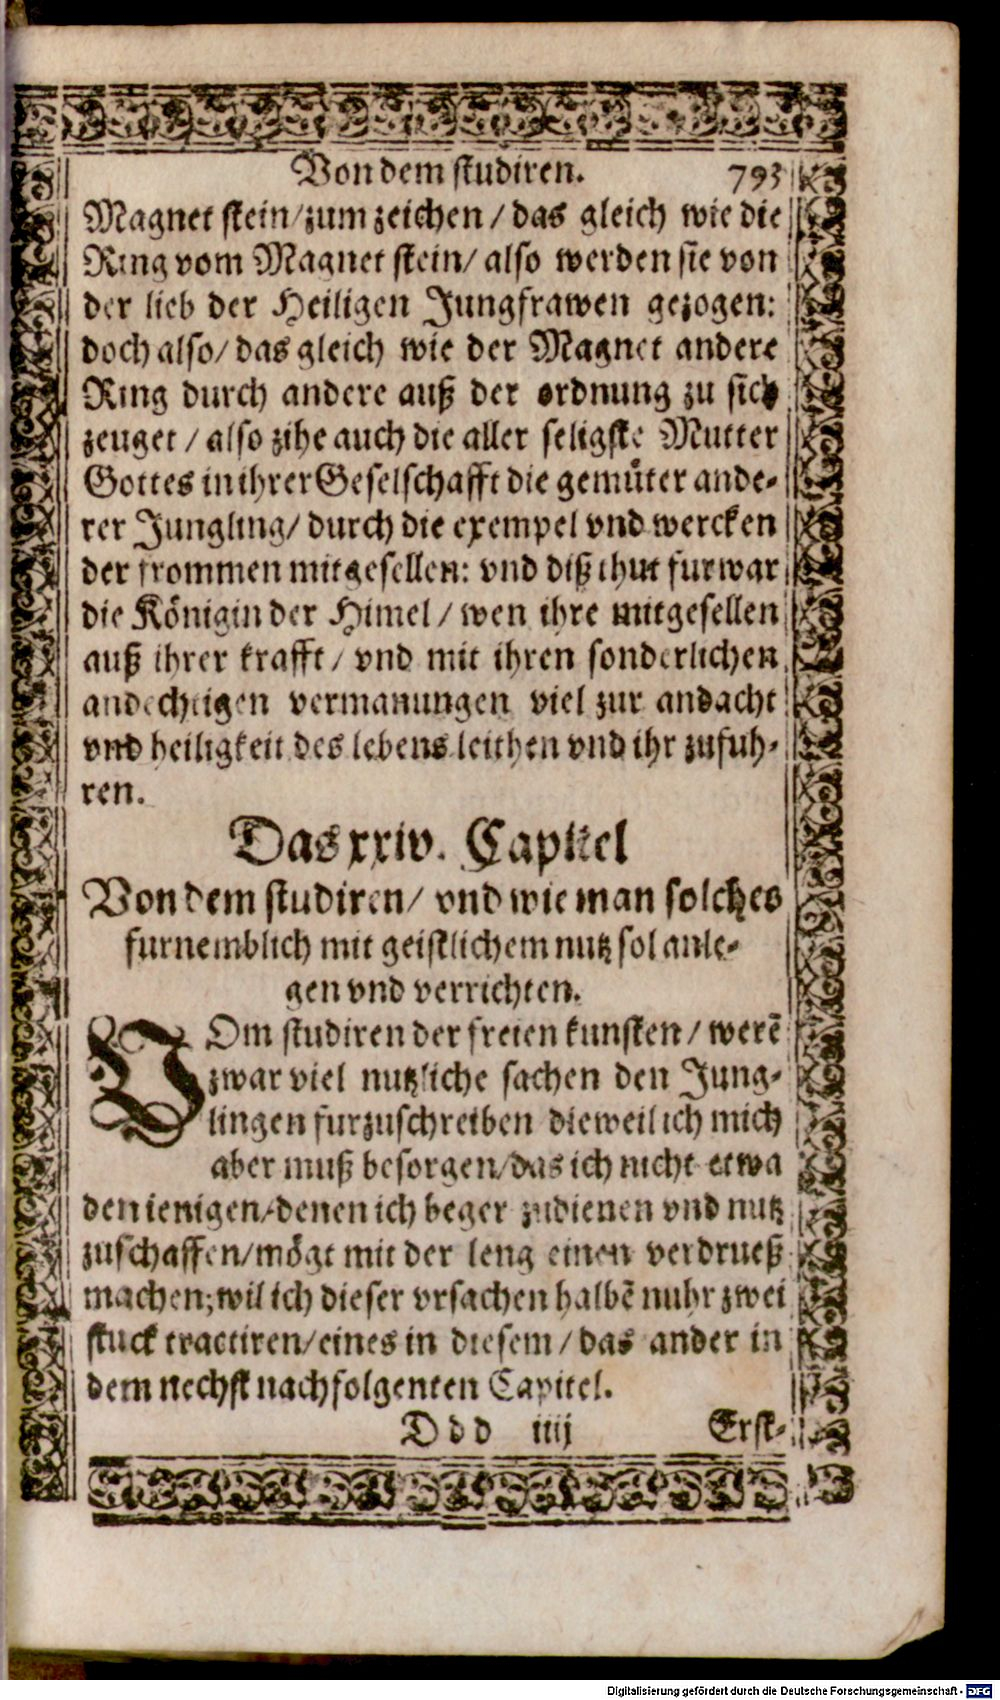 Von dem studiren. 793
Magnet stein/zum zeichen/das gleich wie die
Ring vom Magnet stein/ also werden sie von
der lieb der Heiligen Jungfrawen gezogen:
doch also/ das gleich wie der Magnet andere
Ring durch andere auß der ordnung zu sich
zeuget/also zihe auch die aller seligste Mutter
Gottes in ihrer Geselschafft die gemüter ande-
rer Jungling/ durch die exempel vnd wercken
der frommen mitgesellen: vnd diß thut furwar
die Königin der Himel/ wen ihre mitgesellen
auß ihrer krafft/ vnd mit ihren sonderlichen
andechtigen vermanungen viel zur andacht
vnd heiligkeit des lebens leithen vnd ihr zufuh-
ren.
Das xxiv. Capittel
Von dem studiren/ vnd wie man solches
furnemblich mit geistlichem nutz sol anle-
gen vnd verrichten.
VOm studiren der freien kunsten/ werẽ
zwar viel nutzliche sachen den Jung-
lingen furzuschreiben dieweil ich mich
aber muß besorgen/das ich nicht etwa
den ienigen/denen ich beger zudienen vnd nutz
zuschaffen/mögt mit der leng einen verdrueß
machen; wil ich dieser vrsachen halbẽ nuhr zwei
stuck tractiren/eines in diesem/das ander in
dem nechst nachfolgenten Capitel.
Ddd iiij Erst-
Digitalisierung gefördert durch die Deutsche Forschungsgemeinschaft - DFG